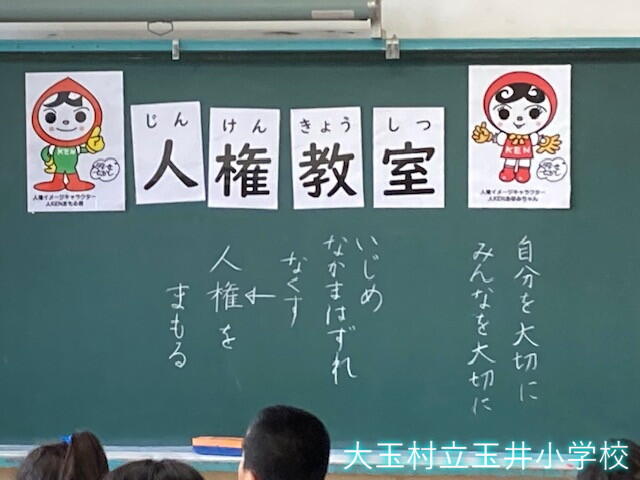 じんけんきょうしつ
人権教室
KEN
人権イメージキャラクター
人KENまもる君
KEN
人権イメージキャラクター
人KENあゆみちゃん
自分を大切に
みんなを大切に
いじめ
なかまはずれ
なくす
人権を
まもる
大玉村立玉井小学校